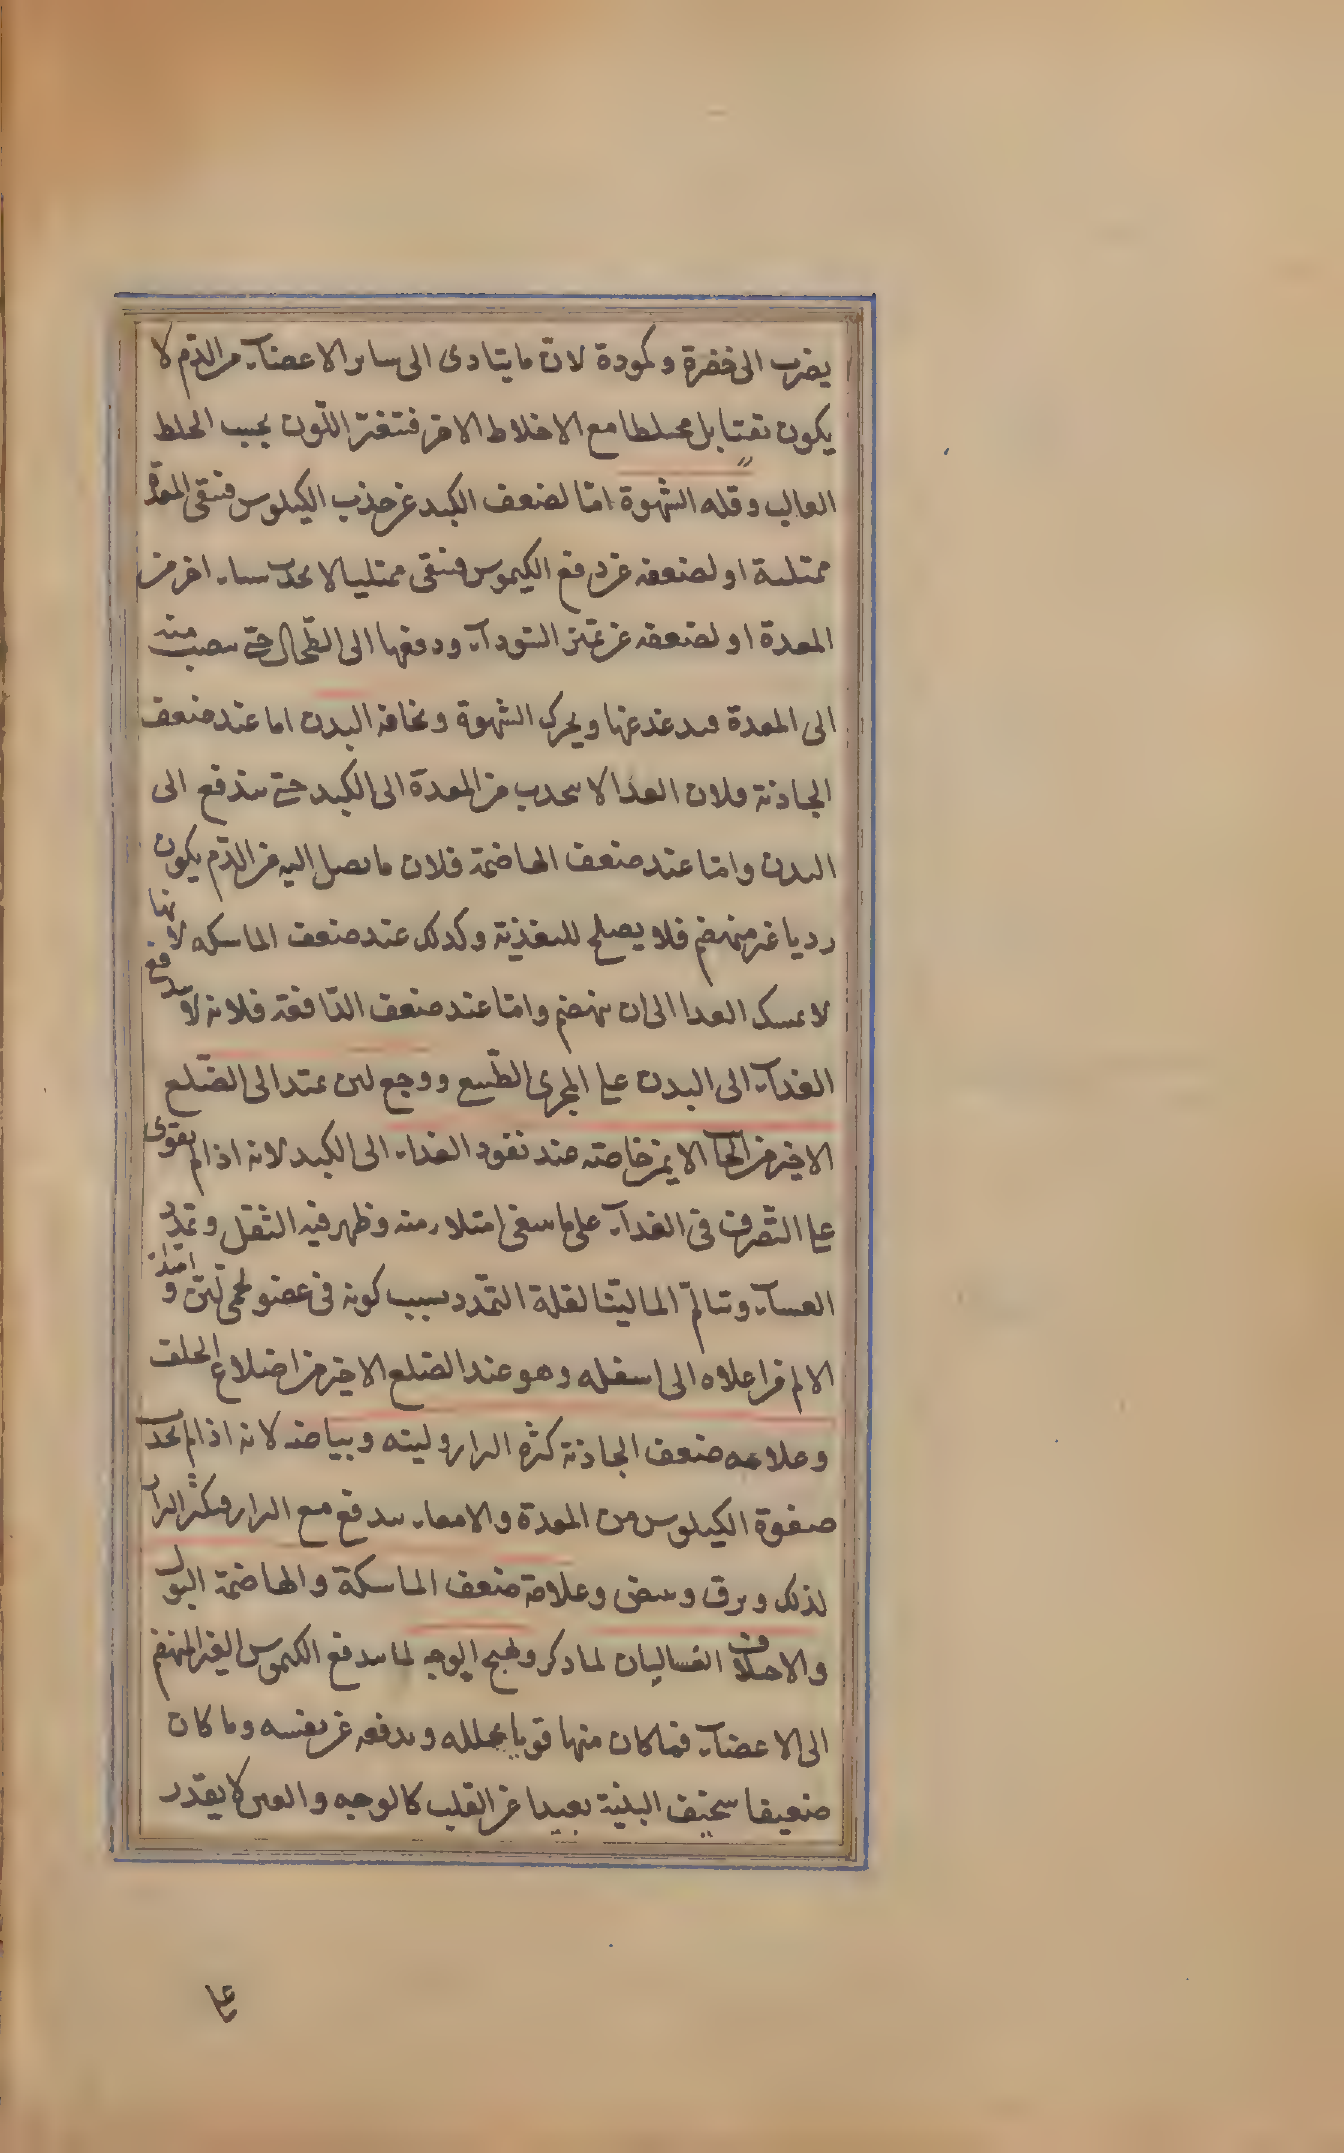 يضرب الى خضرة وكمودة لان ما يتادى الى ساير الاعضآء من الدّم لا
يكون نقيّا بل مختلطا مع الاخلاط الاخر فتتغيّر اللّون بحسب الخلط
الغالب وقله الشّهوة امّا لضعف الكبد عن جذب الكيلوس فتبقى المعدة
ممتلية او لضعفه عن دفع الكيموس فتبقى ممتليا لا يجذب شياء اخر من
المعدة او لضعفه عن تميّز السّودآء ودفعها الى الطّحال حتى ينصب منه
الى المعدة فيدغدغها ويحرك الشهوة ونحافه البدن اما عند ضعف
الجاذبة فلان الغذا لا ينجذب من المعدة الى الكبد حتى يندفع الى
البدن وامّا عند ضعف الهاضمة فلان ما يصل اليه من الدّم يكون
رديا غير منهضم فلا يصلح للتغذية وكذلك عند ضعف الماسكه لانها
لا تمسك الغذا الى ان ينهضم وامّا عند ضعف الدّافعة فلانه لا يندفع
الغذآء الى البدن على المجرى الطّبيعى ووجع لين يمتد الى الضّلع
الاخير من الجانب الايمن خاصّته عند نفوذ الغذاء الى الكبد لانه اذا لم يقوى
على التّصرف فى الغذآء على ما ينبغى امتلاء منه وظهر فيه الثقل وتمدّد
الغشآء وتالّم الما ليّنا لقلة التمدّد بسبب كونه فى عضو لحمى ليّن وامتداد
الالم من اعلاه الى اسفله وهو عند الضلع الاخير من اضلاع الخلف
وعلامه ضعف الجاذبة كثره البراز ولينه وبياضه لانه اذا لم تجذب
صفوة الكيلوس من المعدة والامعاء يندفع مع البراز فيكثر البراز
لذلك ويرق ويبيض وعلامة ضعف الماسكة والهاضمة البول
والاختلاف الغساليان لما ذكر وتهبج الوجه لما يندفع الكيموس الغير المنهضم
الى الاعضآء فما كان منها قويا يحلله ويدفعه عن نفسه وما كان
ضعيفا سخيف البنية بعيدا عن القلب كالوجه والعين لا يقدر
على